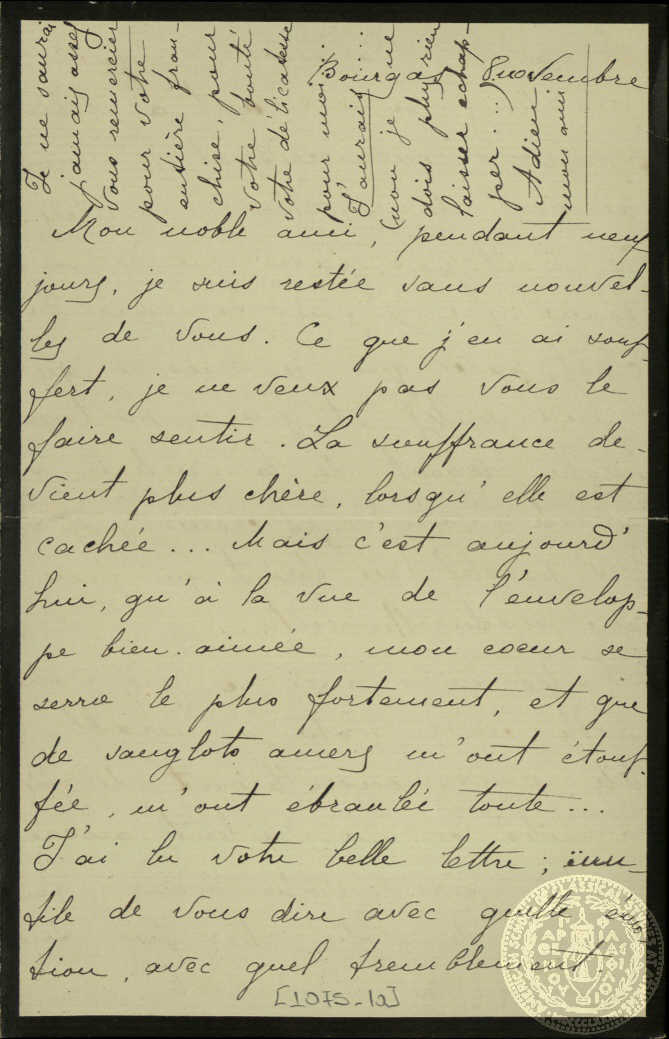 Bourgas, 8 novembre
Mon noble ami, pendant neuf
jours, je suis restée sans nouvel-
les de vous. Ce que j'en ai souf-
fert, je ne veux pas vous le
faire sentir. La souffrance de-
vient plus chère, lorsqu'elle est
cachée... Mais c'est aujourd'
hui, qu'à la vue de l'envelop-
pe bien-aimée, mon coeur se
serre le plus fortement, et que
de sanglots amers m'ont étouf-
fée, m'ont ébranlée toute...
J'ai lu votre belle lettre; inu-
tile de vous dire avec quelle émo-
tion, avec quel tremblement.
Je ne saurai
jamais assez
vous remercier
pour votre
entière fran-
chise, pour
votre bonté
votre délicatesse
pour moi...
J'aurais...
(non je ne
dois plus rien
laisser échap-
per...)
Adieu
mon ami
[1075-1a]